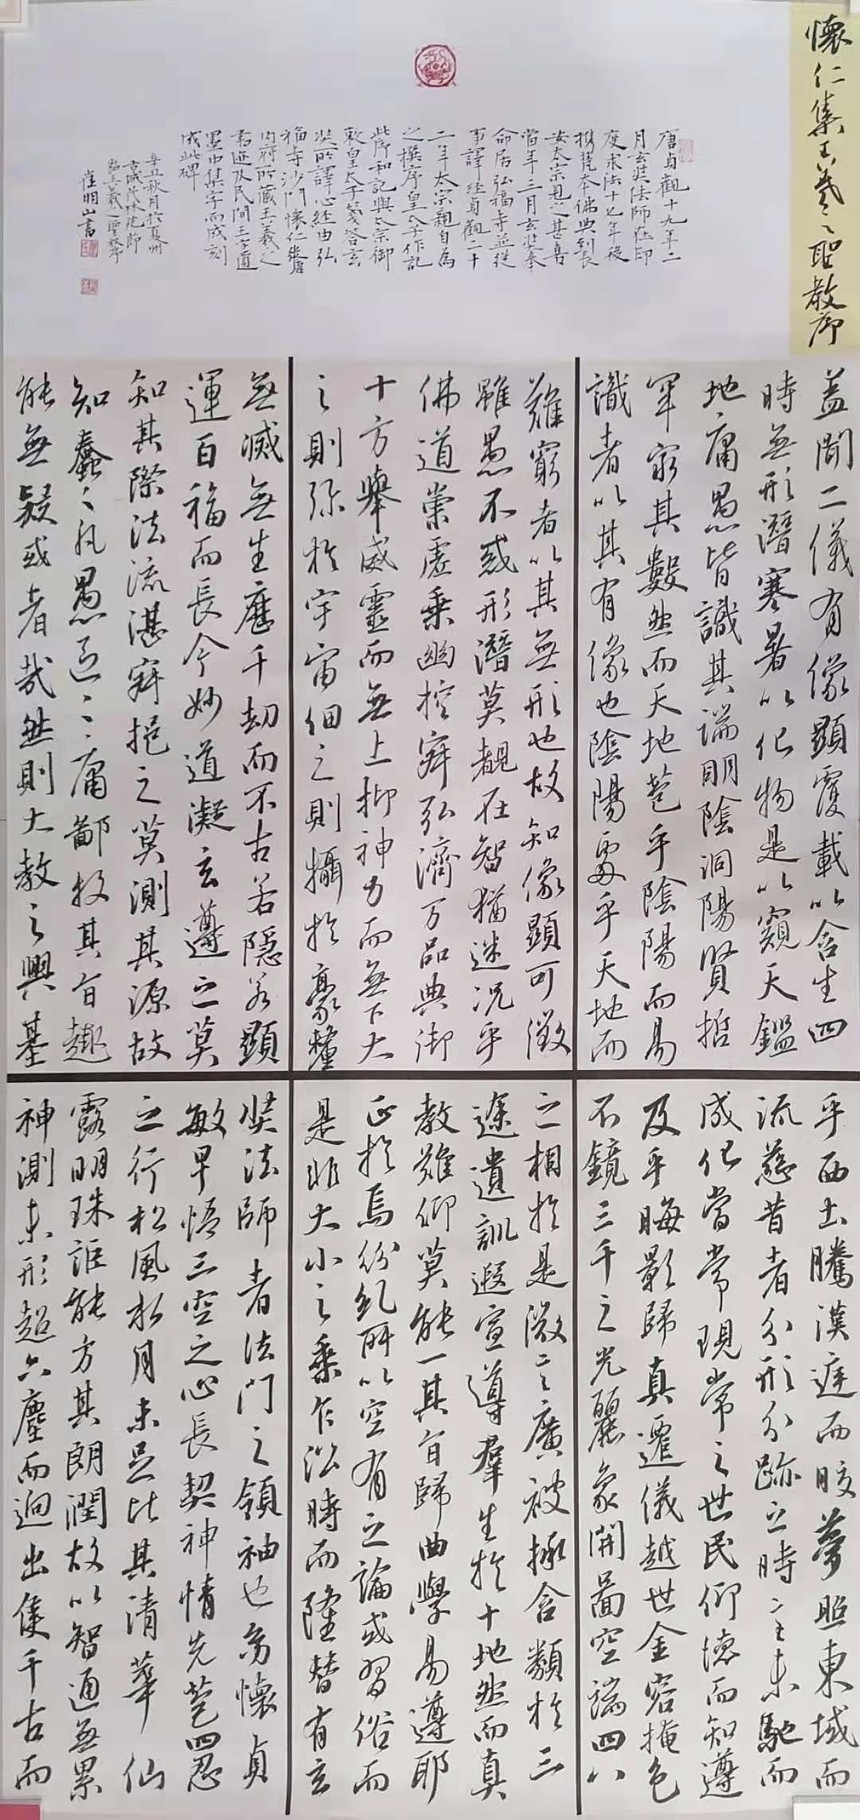 懷仁集王羲之聖教序
唐貞觀十九年二
月玄奘法師在印
度求法十七年後
携梵本佛典到長
安太宗見之甚喜
當年三月玄奘奉
命居弘福寺並從
事譯經貞觀二十
二年太宗親自為
之撰序皇太子作記
此序和記與太宗御
敕皇太子箋答玄
奘所譯心經由弘
福寺沙門懷仁從唐
内府所藏王羲之
書迹及民間王字遺
墨中集字而成刻
成此碑
辛丑秋月於夏州
古城
臨王羲之聖教序
崔明山書
蓋聞二儀有像顯覆載以含生四
時無形潛寒暑以化物是以窺天鑑
地庸愚皆識其端明陰洞陽賢哲
罕窮其數然而天地苞乎陰陽而易
識者以其有像也陰陽處乎天地而
難窮者以其無形也故知像顯可徵
雖愚不惑形潛莫覩在智猶迷況乎
佛道崇虛乘幽控寂弘濟万品典御
十方舉威靈而無上抑神力而無下大
之則弥於宇宙細之則攝於豪釐
無滅無生歷千劫而不古若隱若顯
運百福而長今妙道凝玄遵之莫
知其際法流湛寂挹之莫測其源故
知蠢〻凡愚區〻庸鄙投其旨趣
能無疑或者哉然則大教之興基
乎西土騰漢庭而皎夢照東域而
流慈昔者分形分跡之時言未馳而
成化當常現常之世民仰德而知遵
及乎晦影歸真遷儀越世金容掩色
不鏡三千之光麗象開圖空端四八
之相於是微言廣被拯含類於三
途遺訓遐宣導群生於十地然而真
教難仰莫能一其旨歸曲學易遵耶
正於焉紛糺所以空有之論或習俗而
是非大小之乘乍沿時而隆替有玄
奘法師者法門之領袖也幼懷貞
敏早悟三空之心長契神情先苞四忍
之行松風水月未足比其清華仙
露明珠詎能方其朗潤故以智通無累
神測未形超六塵而迥出隻千古而